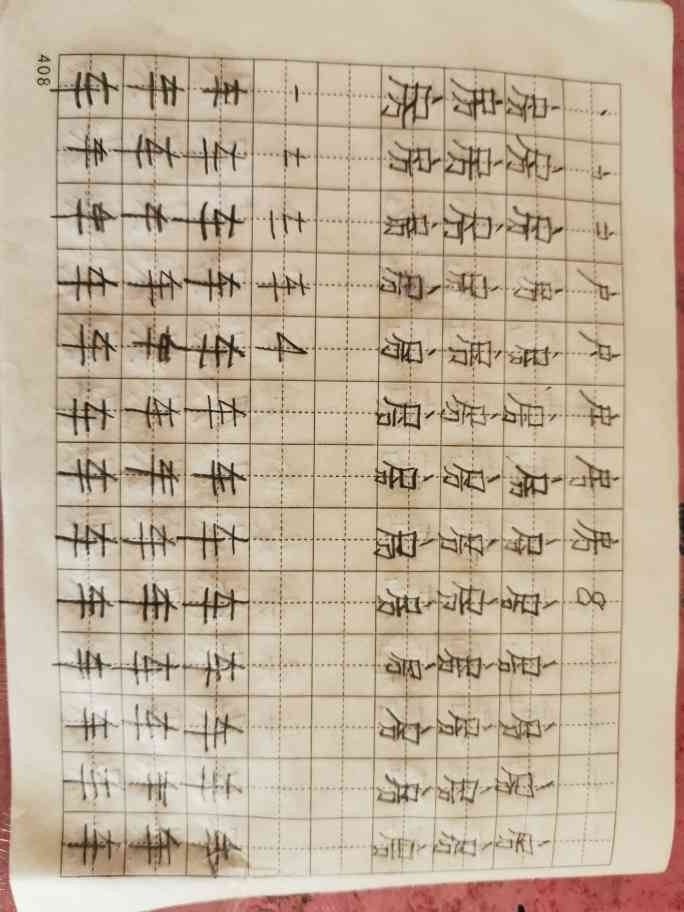 户 房 8
房 房 房 房 房 房 房 房 房 房 房 房 房
房 房 房 房 房 房 房 房 房 房 房 房 房
房 房 房 房 房 房 房 房 房 房 房 房 房
一 车 4
车 车 车 车 车 车 车 车 车 车 车 车 车
车 车 车 车 车 车 车 车 车 车 车 车 车
车 车 车 车 车 车 车 车 车 车 车 车 车
408